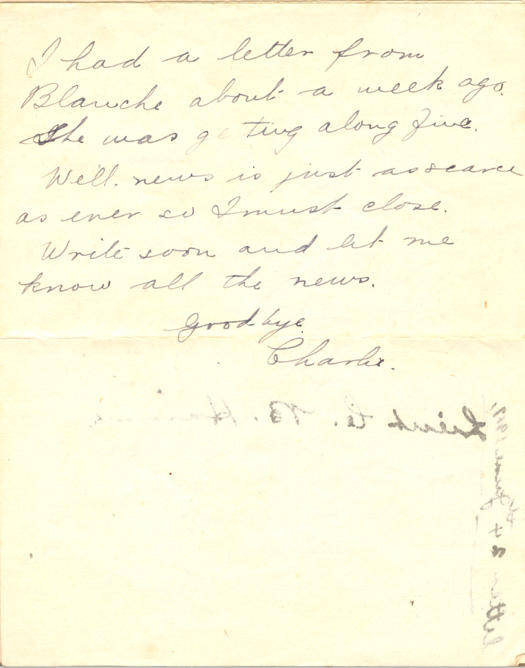 I had a letter from
Blanche about a week ago.
She was g ting along fine.
Well. news is just as scarce
as ever so I must close.
Write soon and let me
know all the news.
Goodbye.
Charlie.
Lieut C. B.
June 1917,